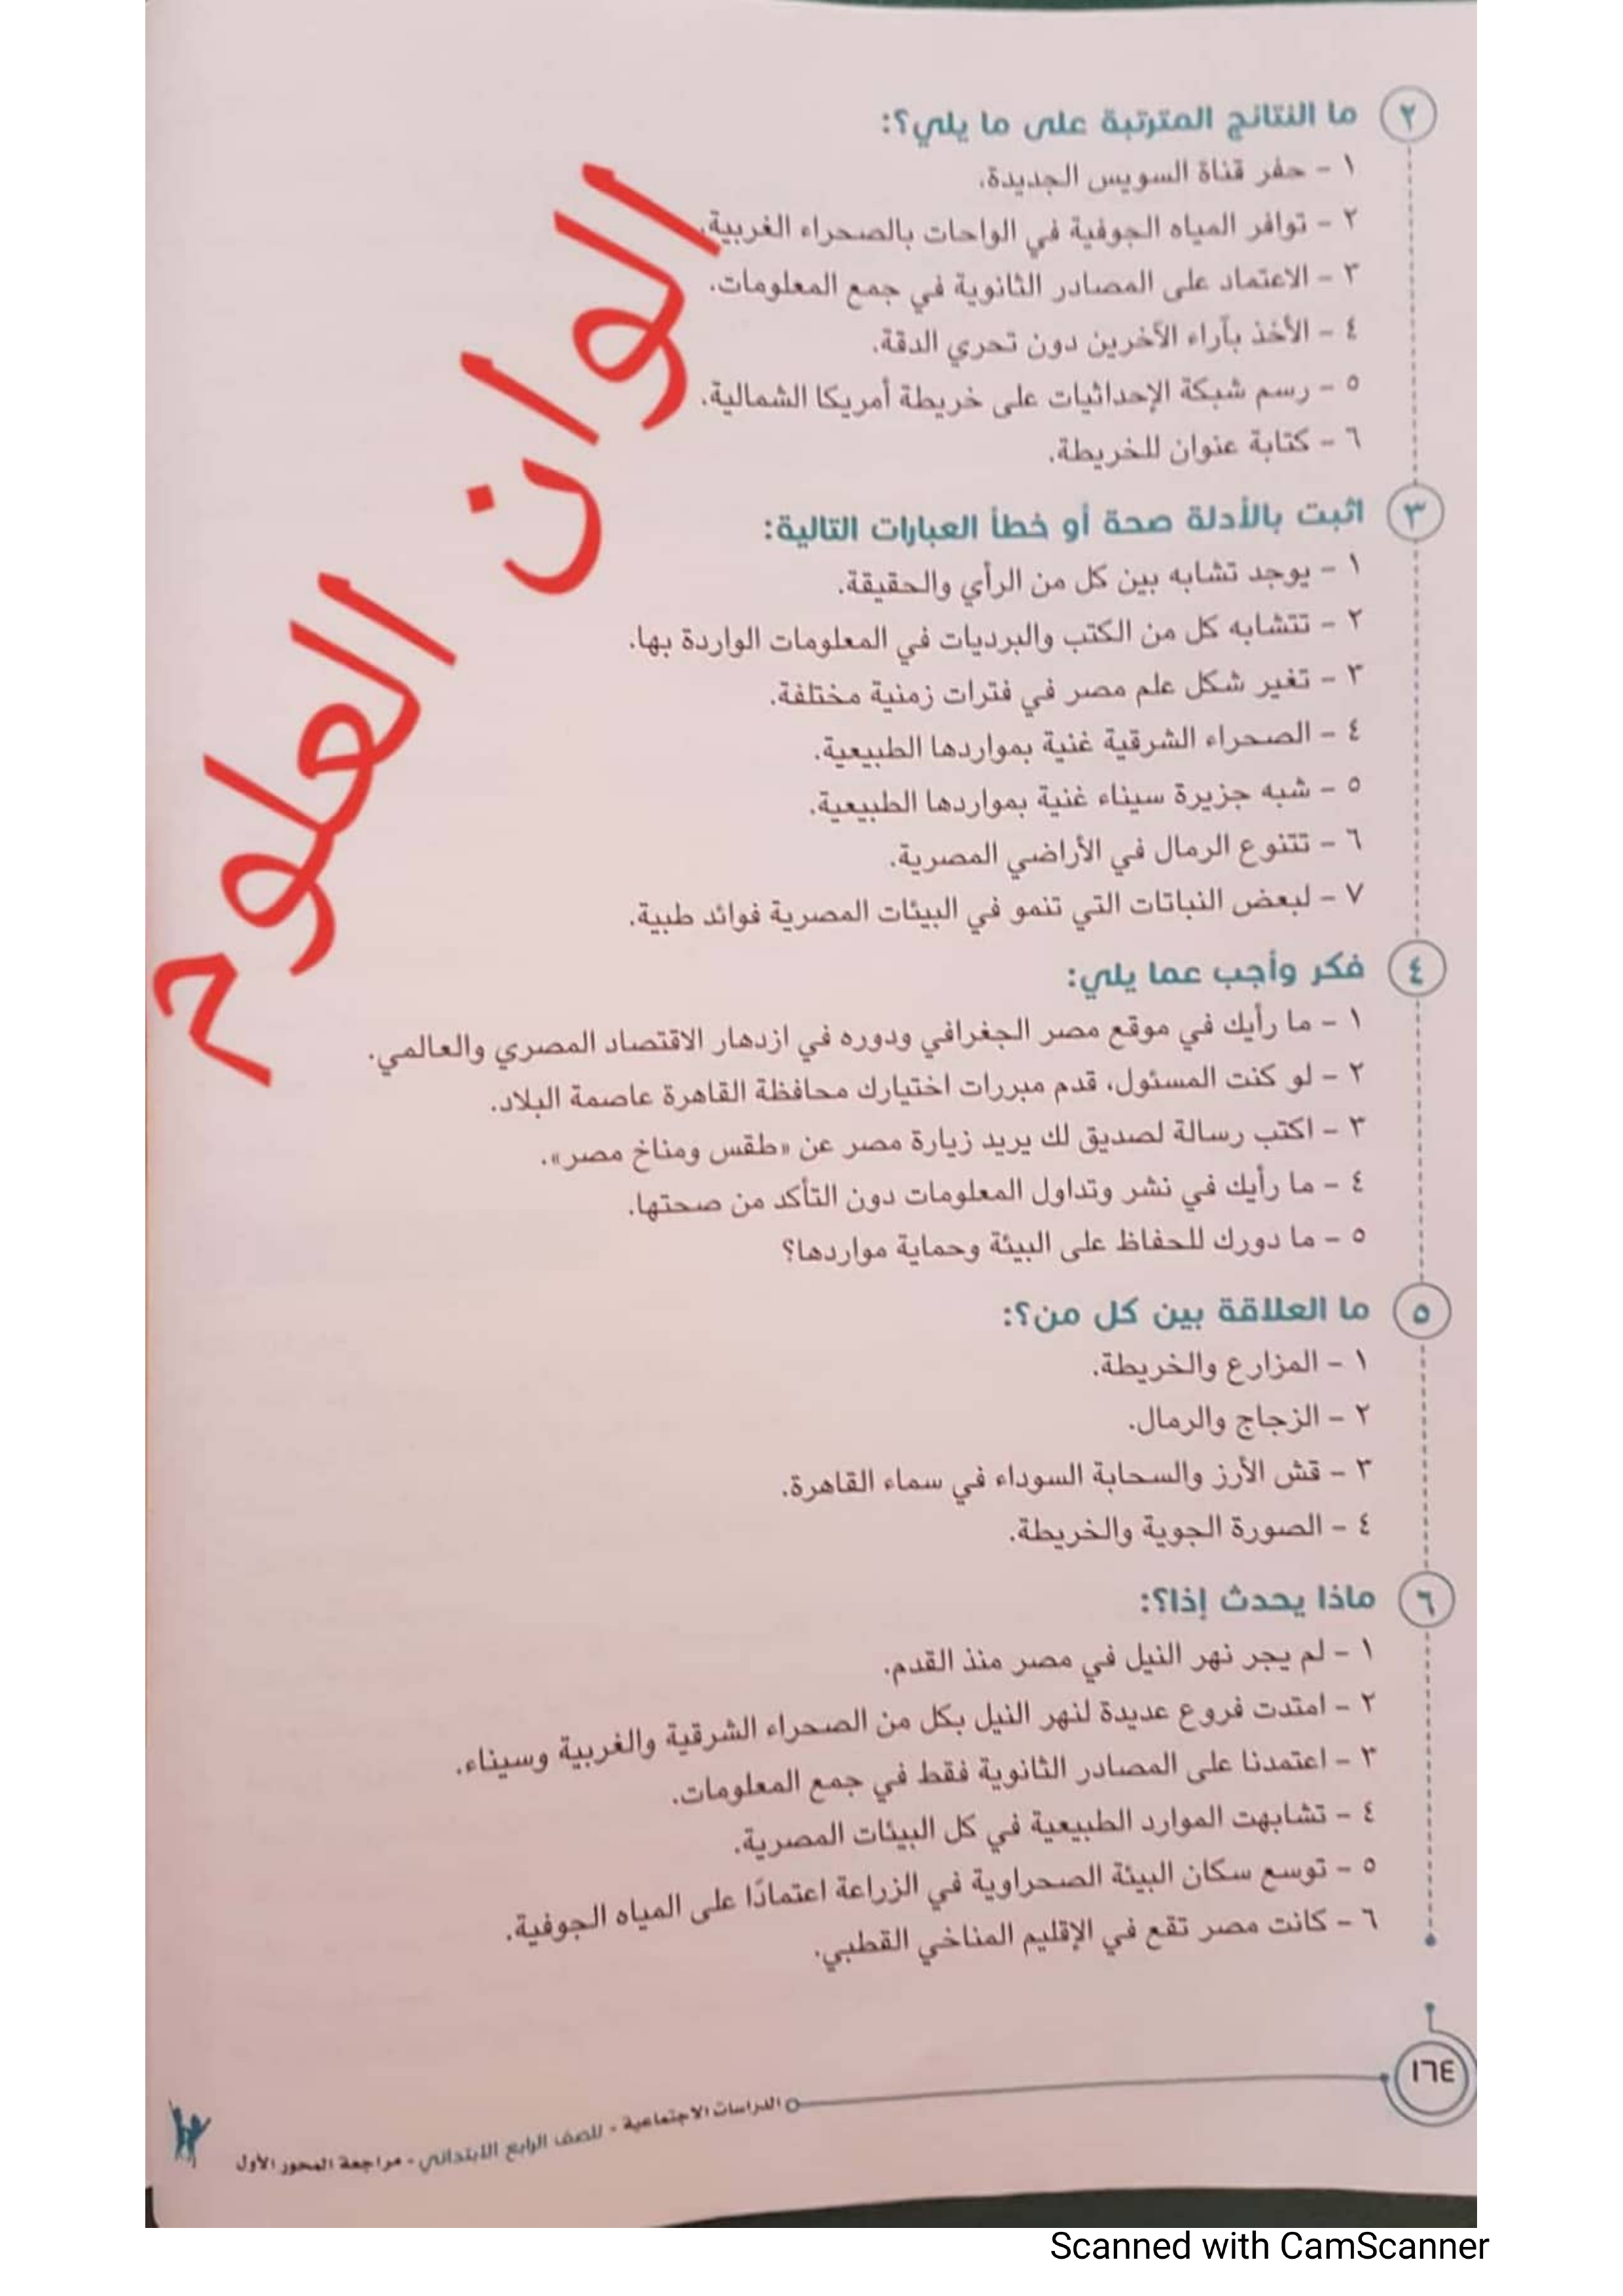 ٢ ما النتائج المترتبة على ما يلي؟:
١ - حفر قناة السويس الجديدة.
٢ - توافر المياه الجوفية في الواحات بالصحراء الغربية.
٣ - الاعتماد على المصادر الثانوية في جمع المعلومات.
٤ - الأخذ بآراء الآخرين دون تحري الدقة.
٥ - رسم شبكة الإحداثيات على خريطة أمريكا الشمالية.
٦ - كتابة عنوان للخريطة.
٣ اثبت بالأدلة صحة أو خطأ العبارات التالية:
١ - يوجد تشابه بين كل من الرأي والحقيقة.
٢ - تتشابه كل من الكتب والبرديات في المعلومات الواردة بها.
٣ - تغير شكل علم مصر في فترات زمنية مختلفة.
٤ - الصحراء الشرقية غنية بمواردها الطبيعية.
٥ - شبه جزيرة سيناء غنية بمواردها الطبيعية.
٦ - تتنوع الرمال في الأراضي المصرية.
٧ - لبعض النباتات التي تنمو في البيئات المصرية فوائد طبية.
الوان العلوم
٤ فكر وأجب عما يلي:
١ - ما رأيك في موقع مصر الجغرافي ودوره في ازدهار الاقتصاد المصري والعالمي.
٢ - لو كنت المسئول، قدم مبررات اختيارك محافظة القاهرة عاصمة البلاد.
٣ - اكتب رسالة لصديق لك يريد زيارة مصر عن «طقس ومناخ مصر».
٤ - ما رأيك في نشر وتداول المعلومات دون التأكد من صحتها.
٥ - ما دورك للحفاظ على البيئة وحماية مواردها؟
٥ ما العلاقة بين كل من؟:
١ - المزارع والخريطة.
٢ - الزجاج والرمال.
٣ - قش الأرز والسحابة السوداء في سماء القاهرة.
٤ - الصورة الجوية والخريطة.
٦ ماذا يحدث إذا؟:
١ - لم يجر نهر النيل في مصر منذ القدم.
٢ - امتدت فروع عديدة لنهر النيل بكل من الصحراء الشرقية والغربية وسيناء.
٣ - اعتمدنا على المصادر الثانوية فقط في جمع المعلومات.
٤ - تشابهت الموارد الطبيعية في كل البيئات المصرية.
٥ - توسع سكان البيئة الصحراوية في الزراعة اعتمادًا على المياه الجوفية.
٦ - كانت مصر تقع في الإقليم المناخي القطبي.
١٦٤
الدراسات الاجتماعية - للصف الرابع الابتدائي - مراجعة المحور الأول
Scanned with CamScanner